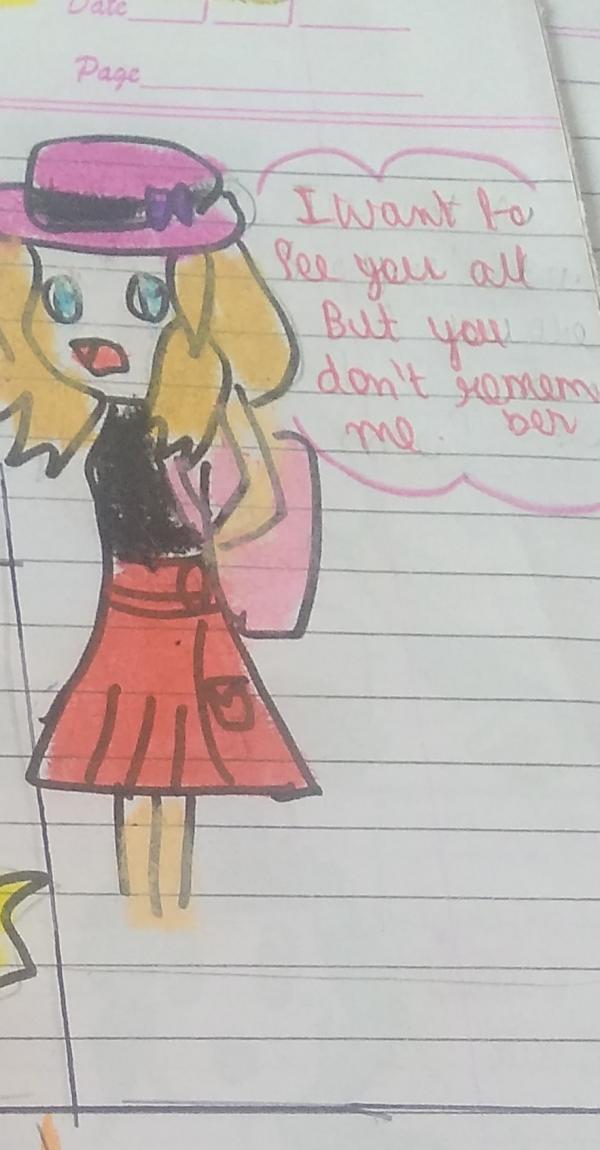 Date
Page
I want to
see you all
But you
don't remem
ber
me.